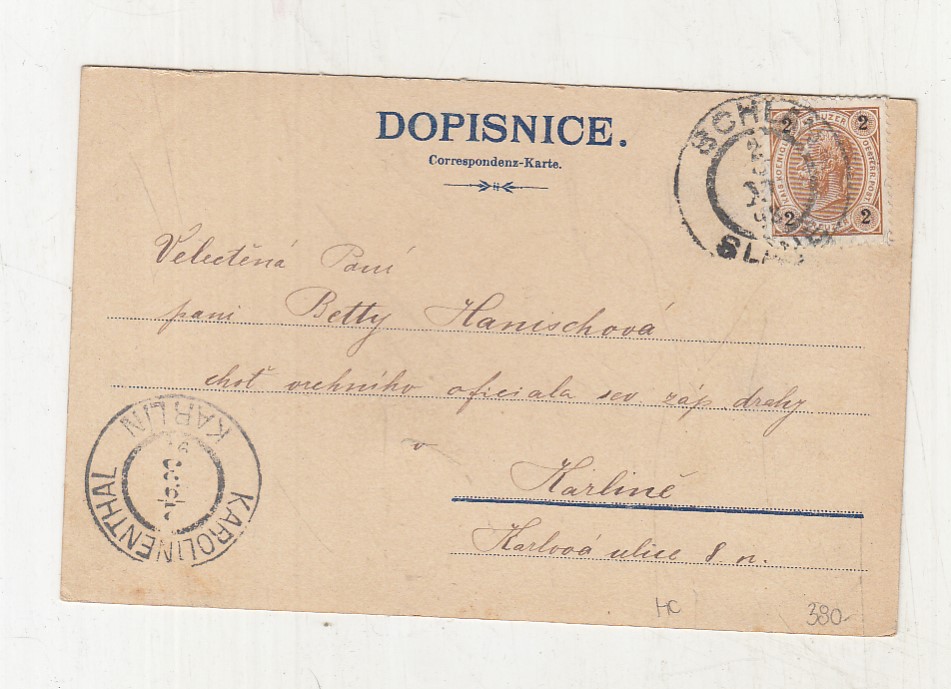 DOPISNICE.
Correspondenz-Karte.
SCHL
SLA
2 KREUZER 2
KAIS. KOENIGL. OESTERR. POST.
2 KREUZER 2
Velectěná Paní
paní Betty Hanischová
choť vrchního oficiala sev záp. dráhy
v
Karlíně
Karlova ulice 8 n.
KARLIN
KAROLINENTHAL
HC
390-